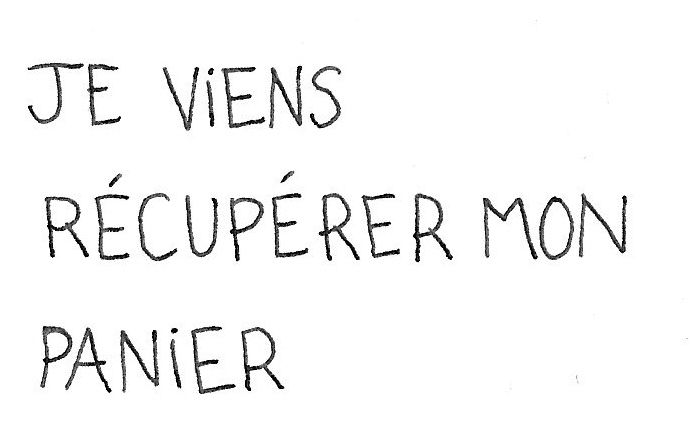 JE ViENS
RÉCUPÉRER MON
PANiER